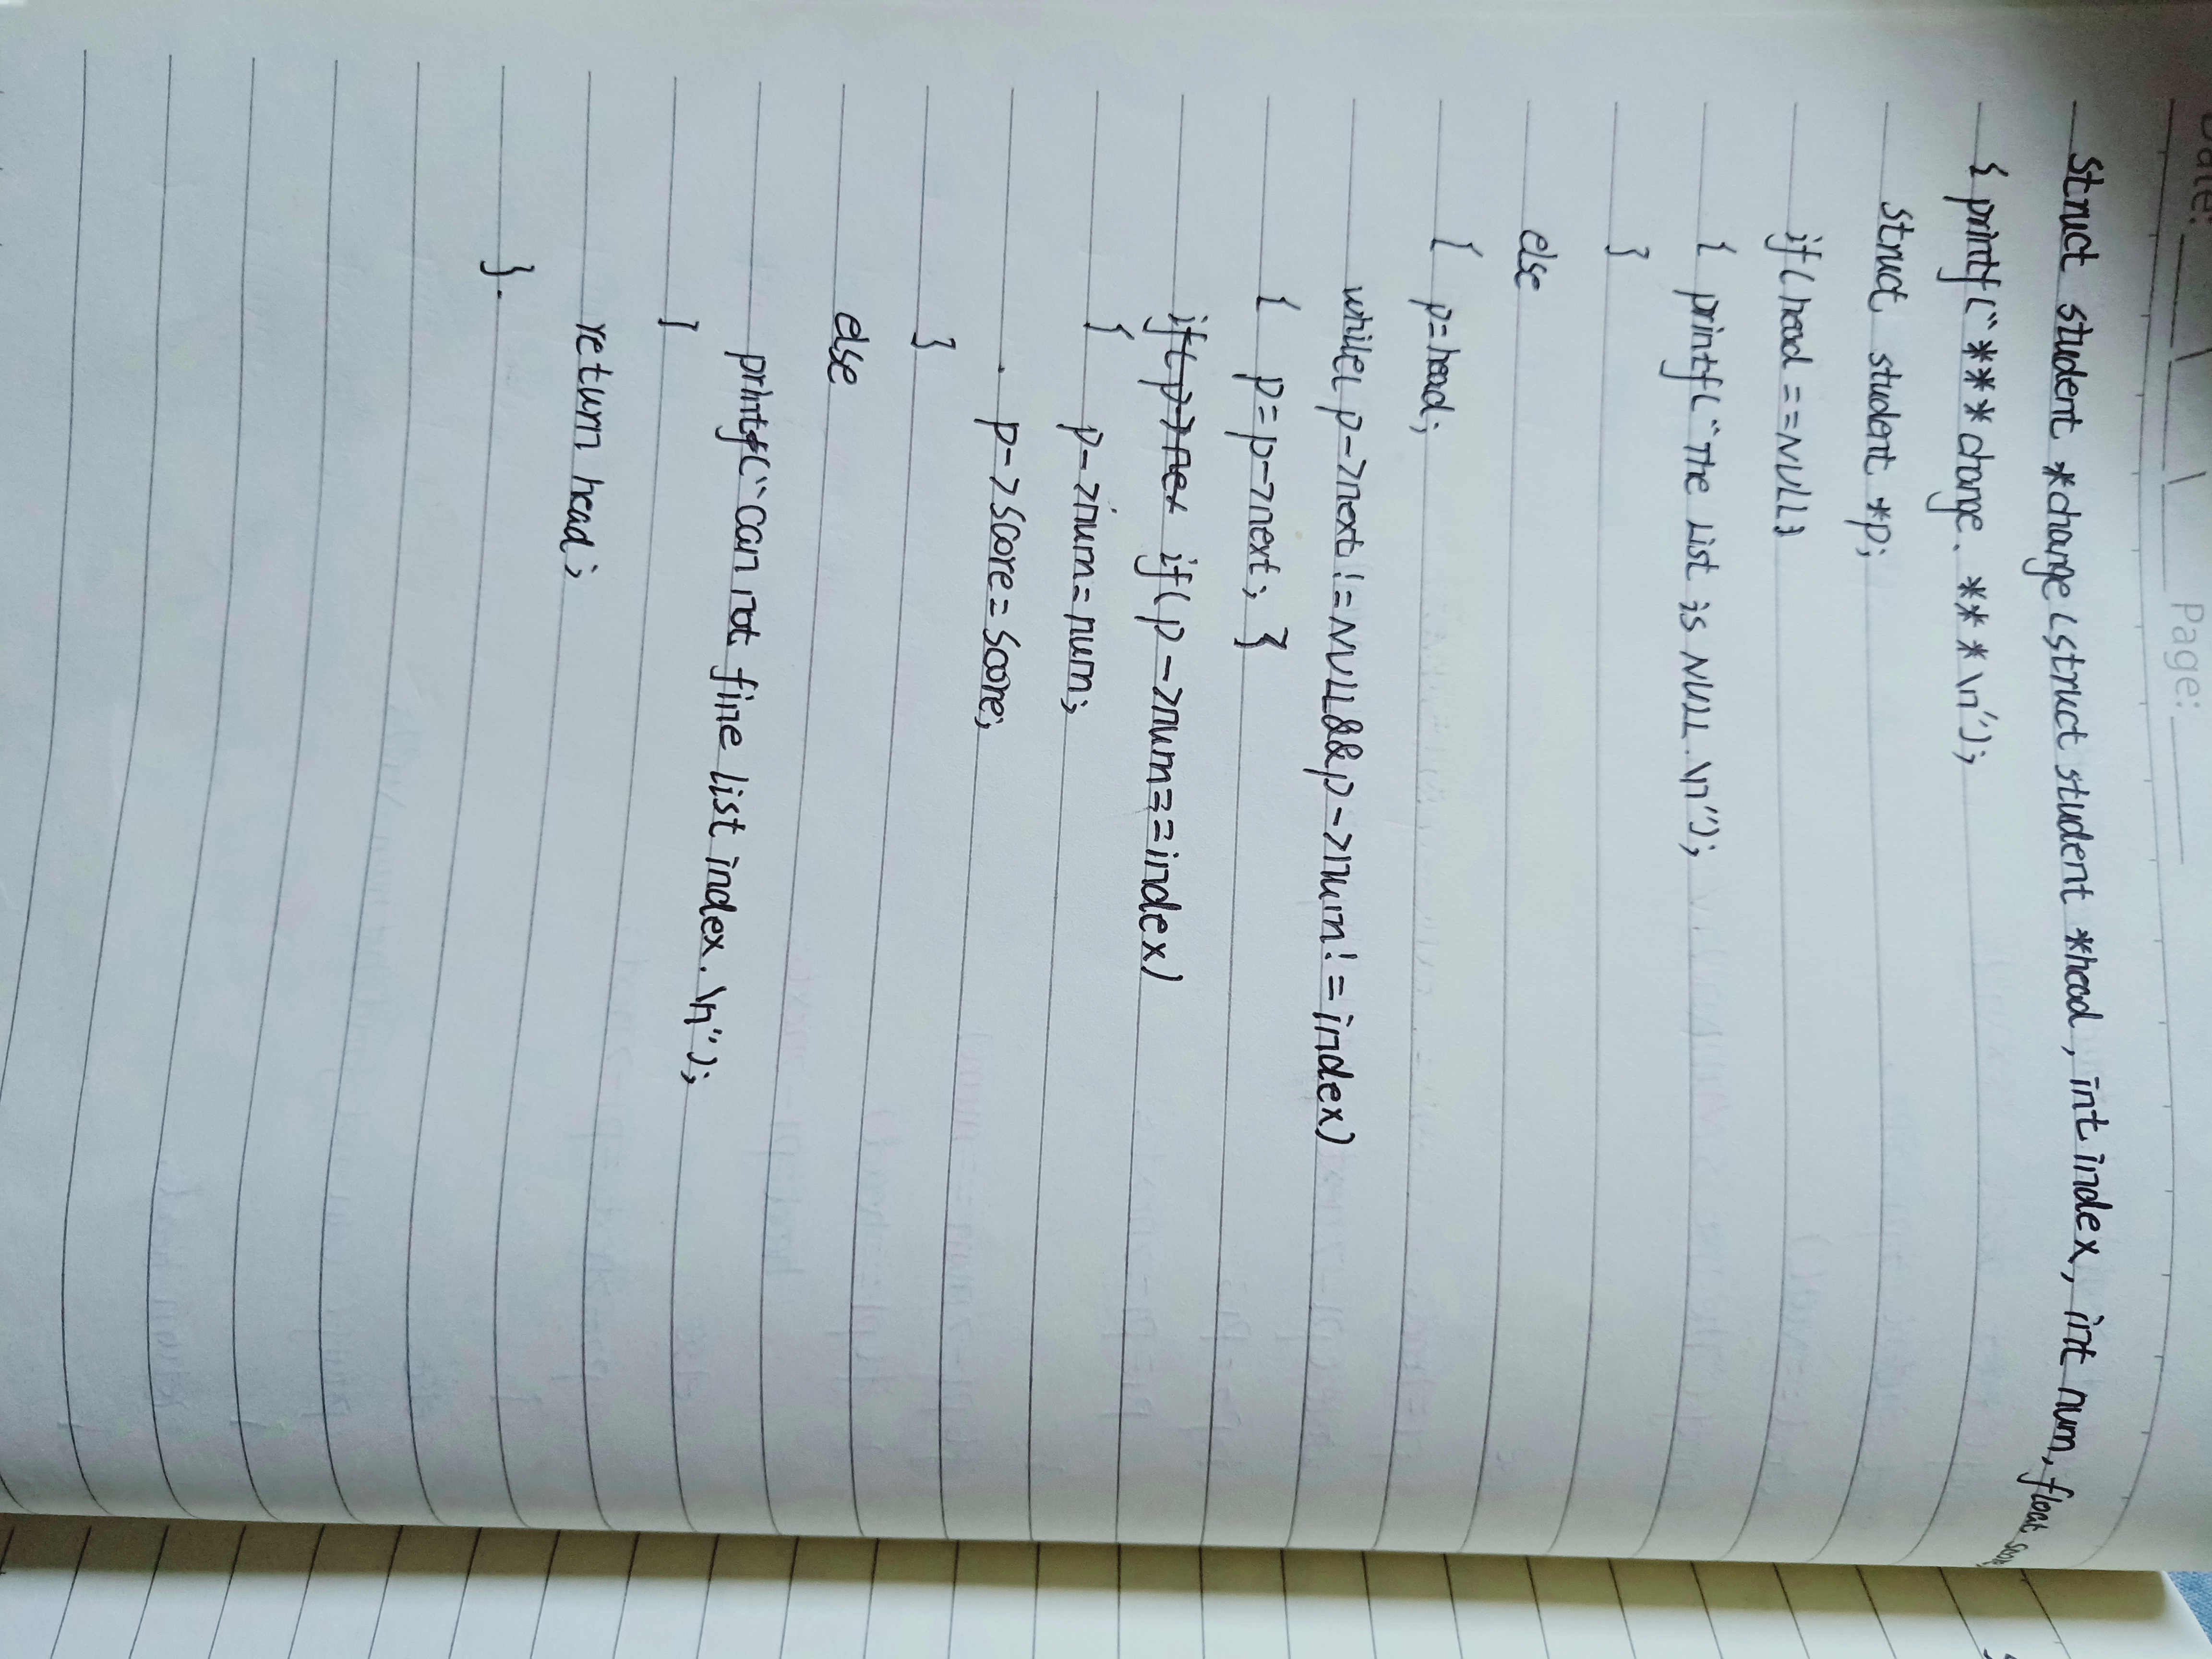 Date: \ \ Page:
struct student *change(struct student *head, int index, int num, float score
{ printf("***change. ***\n");
struct student *p;
if(head==NULL)
{ printf("The List is NULL.\n");
}
else
{ p=head;
while(p->next!=NULL&&p->num!=index)
{ p=p->next; }
if(p->nex if(p->num==index)
{ p->num=num;
p->score=score;
}
else
printf("can not fine list index.\n");
}
return head;
}.